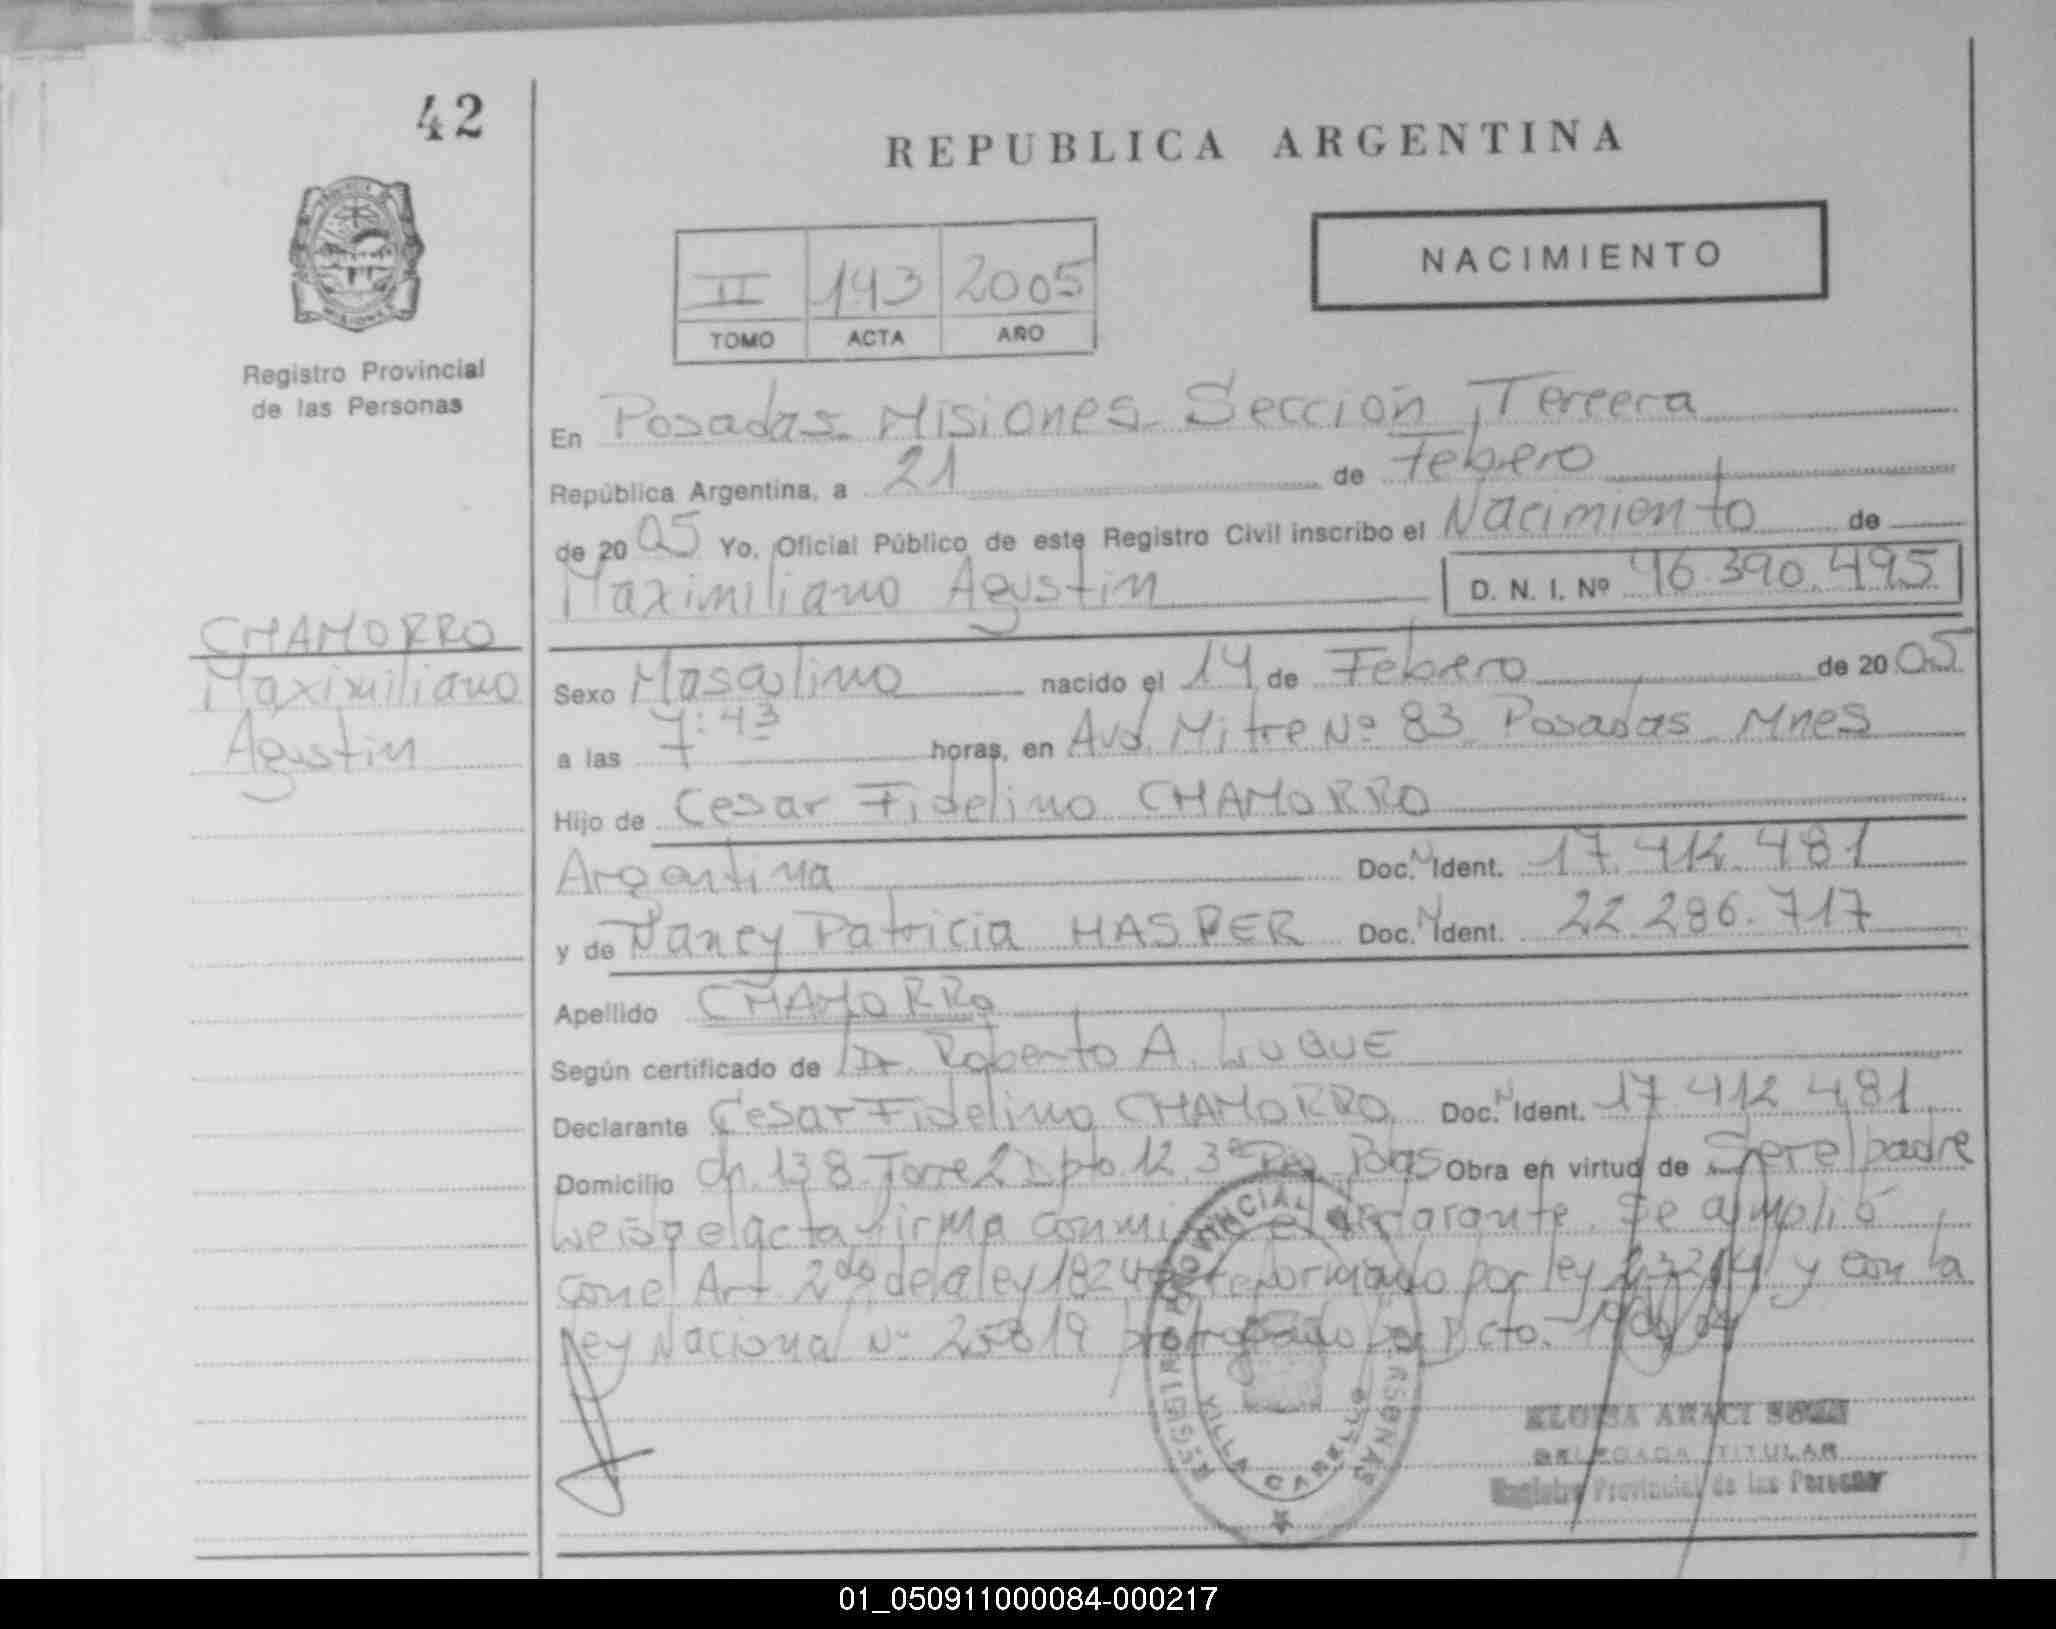 42
REPUBLICA ARGENTINA
NACIMIENTO
II 143 2005
TOMO ACTA AÑO
Registro Provincial
de las Personas
En Posadas Misiones Sección Tercera
República Argentina, a 21 de Febero
de 2005 Yo, Oficial Público de este Registro Civil inscribo el Nacimiento de
Maximiliano Agustin D. N. I. Nº 46.390.495
CHAMORRO
Maximiliano
Agustin
Sexo Masculino nacido el 14 de Febrero de 2005
a las 7:43 horas, en Avd. Mitre Nº 83 Posadas Mnes
Hijo de Cesar Fidelino CHAMORRO
Argentina Doc. N Ident. 17.412.481
y de Nancy Patricia HASPER Doc. N Ident. 22.286.717
Apellido CHAMORRO
Según certificado de Dr. Roberto A. LUQUE
Declarante Cesar Fidelino CHAMORRO Doc. N Ident. 17 412 481
Domicilio Ch. 138 Torre 2 Dpto 12 3º Pdas Obra en virtud de Ser el padre
Leida el acta firma conmigo el declarante. Se amplió
con el Art 2do de la ley 18248 reformado por ley 23264 y con la
ley Nacional Nº 25819 prorrogado por Dcto.
REGISTRO PROVINCIAL DE LAS PERSONAS
VILLA CABELLO
ELOISA ARACI
DELEGADA TITULAR
Registro Provincial de las Personas
01_050911000084-000217